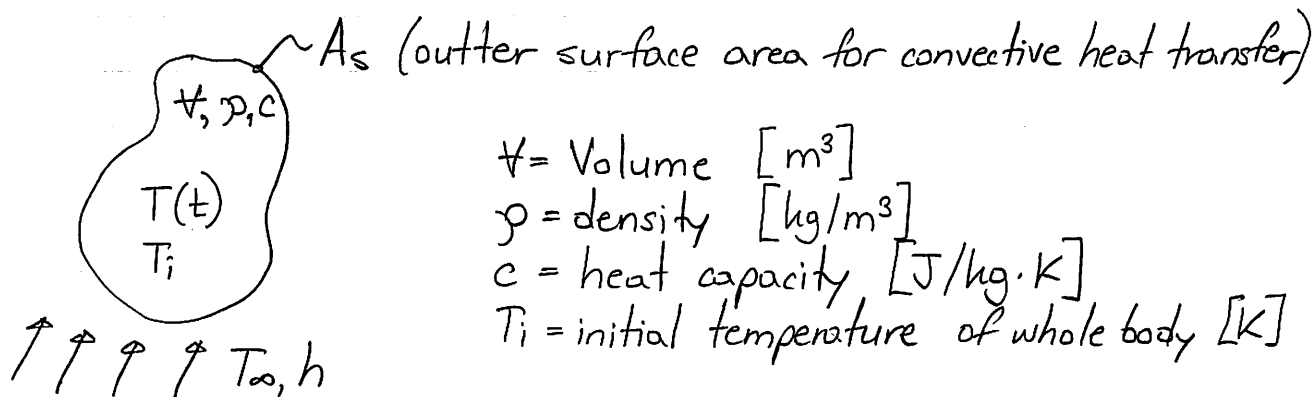 As (outter surface area for convective heat transfer)
∀, ρ, c
∀ = Volume [m³]
T(t)
ρ = density [kg/m³]
Ti
c = heat capacity [J/kg·K]
Ti = initial temperature of whole body [K]
T∞, h